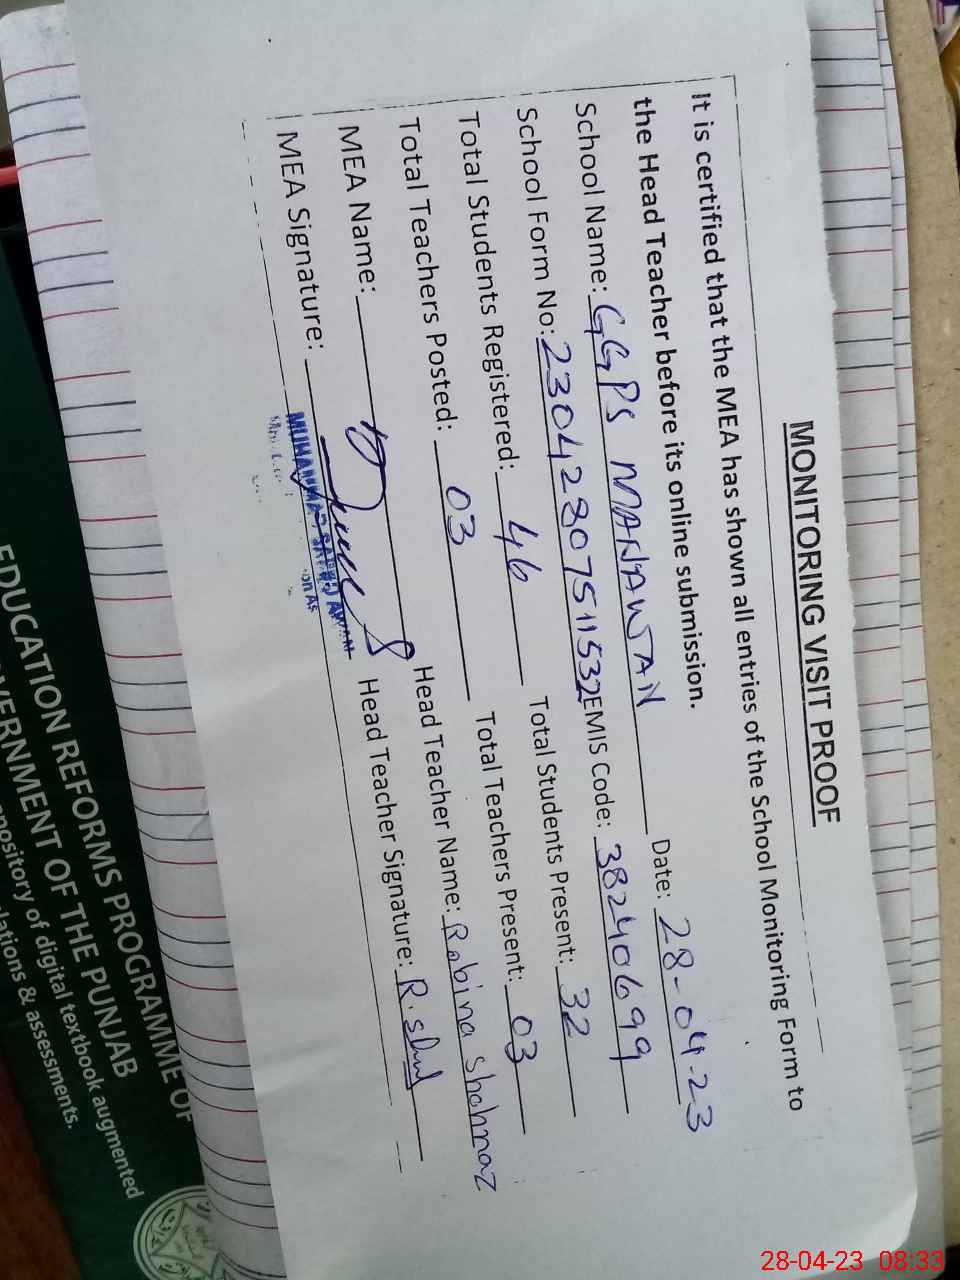 MONITORING VISIT PROOF
It is certified that the MEA has shown all entries of the School Monitoring Form to
the Head Teacher before its online submission.
School Name: GGPS MANAWAN Date: 28-04-23
School Form No: 23042807511532 EMIS Code: 38240699
Total Students Registered: 46 Total Students Present: 32
Total Teachers Posted: 03 Total Teachers Present: 03
MEA Name: Head Teacher Name: Robina Shahnaz
MEA Signature: Head Teacher Signature:
MUHAMMAD AWAN
EDUCATION REFORMS PROGRAMME OF
GOVERNMENT OF THE PUNJAB
repository of digital textbook augmented
& assessments.
28-04-23 08:33